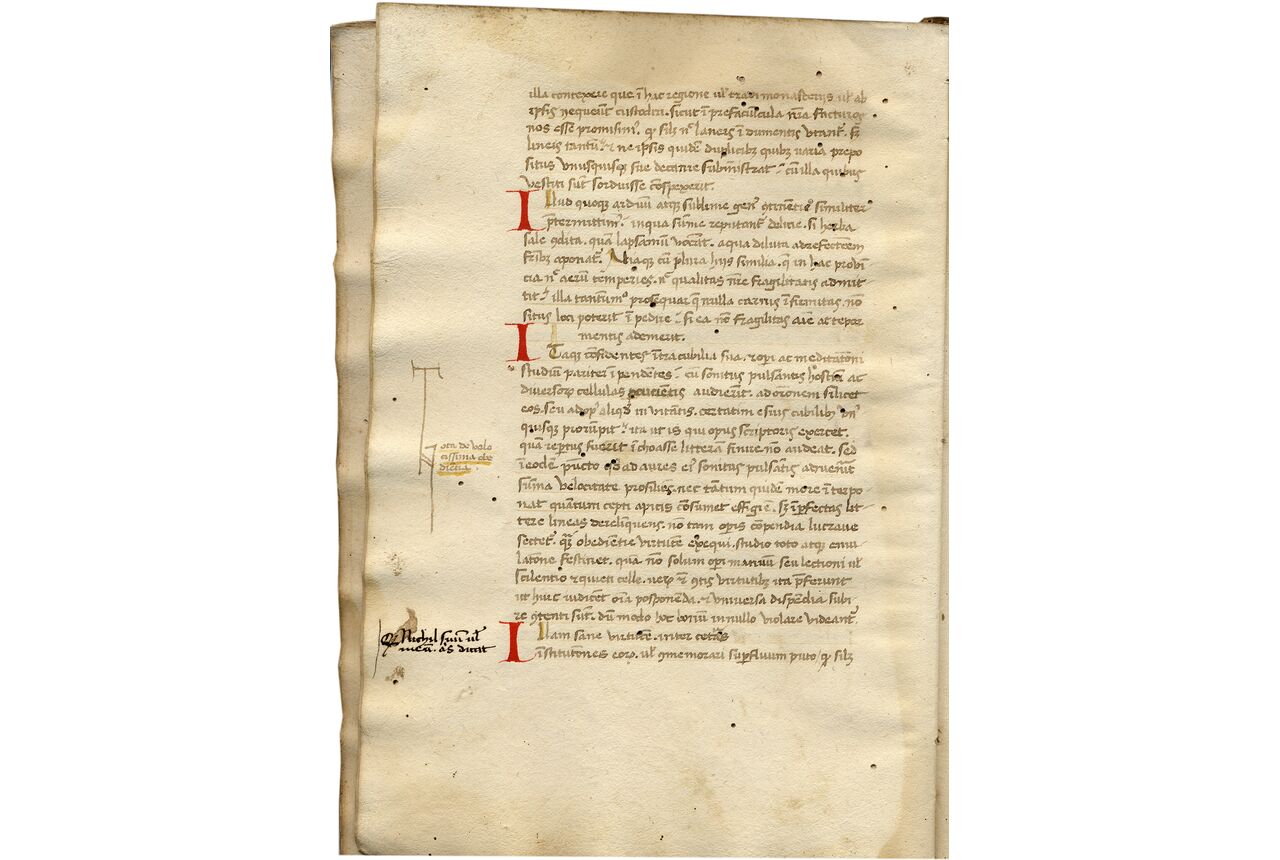 illa contexere que ī hac regione ul' tradi monasteriis ul' ab
ipsis nequeūt custodiri. sicut ī prefaciūcula nr̄a facturos
nos esse promisim9. qꝫ silꝫ nō laneis īdumentis utant̄. sꝫ
lineis tantū. et ne ipsis quidē duplicibꝫ quibꝫ varia prepo
situs unusquisqꝫ sue decanie subministrat. cū illa quibus
vestiti sūt sorduisse cōspexerit.
Illud quoqꝫ arduū atqꝫ sublime gen9 9tinentie similiter
p̄termittim9. in qua sūme reputant̄ delitie. si herba
sale 9dita. quā lapsaniū vocāt. aqua diluta ad refectōem
fr̄ibꝫ aponat̄. Aliaqꝫ cū plura hiis similia. q̄ in hac provī
cia nō aerum temperies. nō qualitas nr̄e fragilitatis admit
tit. illa tantummō prosequar q̄ nulla carnis īfirmitas. nō
situs loci poterit īpedire. si ea nō fragilitas aīe ac tepor
mentis ademerit.
Itaqꝫ cōsidentes ītra cubilia sua. et opi ac meditatōni
studiū pariter īpendētes. cū sonitus pulsantis hostiū ac
diversoꝝ cellulas pcucientis audierīt. ad orōnem silicet
eos. seu ad op9 aliqd̄ invitātis. certatim e suis cubilibꝫ un9
quisqꝫ prorūpit. ita ut is qui opus scriptoris exercet.
quā repertus fuerit īchoasse litterā finire nō audeat. sed
ī eodē pūcto quo ad aures ei9 sonitus pulsātis advenerit
sūma velocitate prosiliēs. nec tātum quidē more īterpo
nat quātum cepti apicis cōsumet effigiē. sꝫ īpfectas lit
tere lineas derelīquens. nō tam opis cōpendia lucrave
sectet̄. qꝫ obedientie virtutē exequi. studio toto atqꝫ emu
latōne festinet. quā nō solum opi manuū seu lectioni ul'
scilentio et quieti celle. veꝝ et 9tis virtutibꝫ ita p̄ferunt
ut huic iudicēt oīa posponenda. et universa dispēdia subi
re 9tenti sūt. dū modo hoc bonū in nullo violare videant̄.
Illam sane virtutē. inter ceteras
īstitutōnes eoꝝ. ul' 9memorari suꝑfluum puto qꝫ silꝫ
Nota de velo
cissima obe
dientia
Qꝫ Nichil suū ul'
meū. aīs dicit